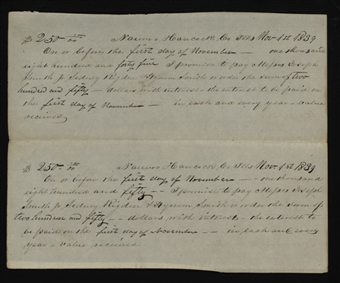 $ 250.00 Nauvoo Hancock Co Ills Nov 1st 1839
On or before the first day of November — one thousand
eight hundred and forty five I promise to pay Messrs Joseph
Smith jr Sidney Rigdon & Hyrum Smith or order the sum of two
hundred and fifty — dollars with interest – the interest to be paid on
the first day of November — in each and every year – value
received
$ 250.00 Nauvoo Hancock Co Ills Nov 1st 1839
On or before the first day of November — one thousand
eight hundred and fifty – I promise to pay Messrs Joseph
Smith jr Sidney Rigdon & Hyrum Smith or order the sum of
two hundred and fifty – dollars with interest – the interest to
be paid on the first day of November – in each and every
year – value received